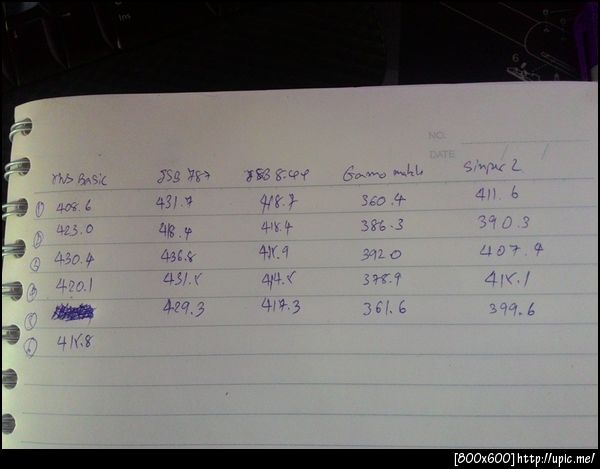 NO.
DATE
RWS Basic JSB 7.87 JSB 8.44 Gamo match Sinper 2
① 408.6 431.7 418.7 360.4 411.6
② 423.0 418.4 418.4 386.3 390.3
③ 430.4 436.8 415.9 392.0 407.4
④ 420.1 431.5 414.5 378.9 415.1
⑤ 429.3 417.3 361.6 399.6
⑥ 415.8
[800x600]http://upic.me/